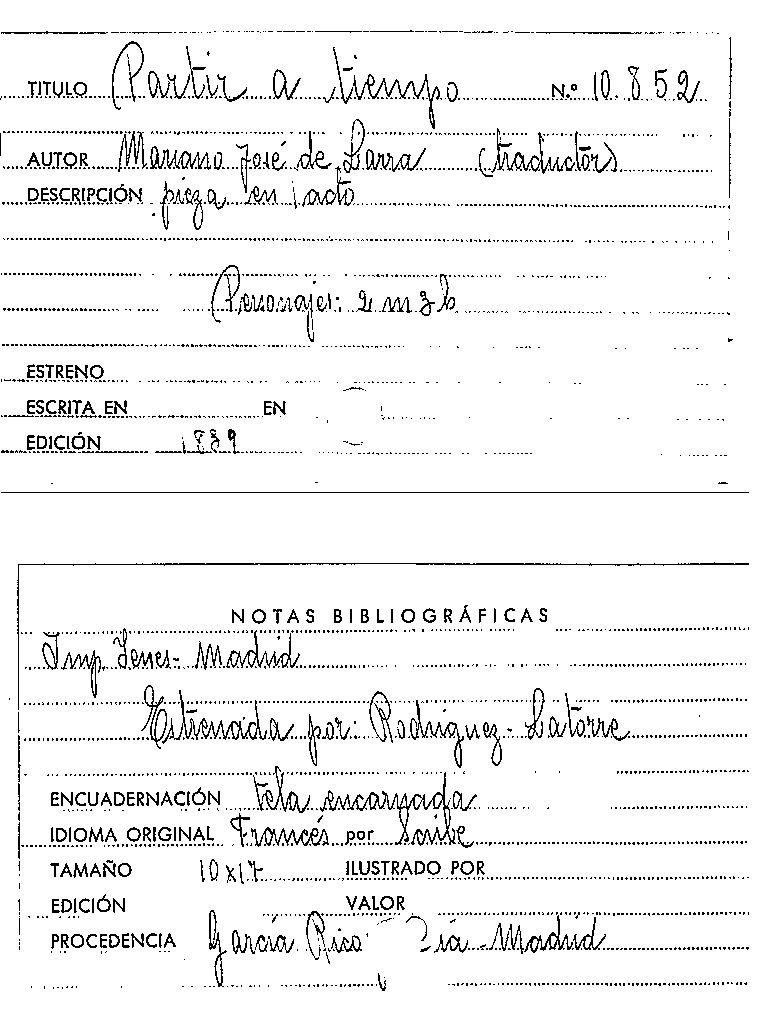 TITULO Partir a tiempo N.º 10.852
AUTOR Mariano José de Larra (traductor)
DESCRIPCIÓN pieza en 1 acto
Personajes: 2 m 3 h
ESTRENO
ESCRITA EN EN
EDICIÓN 1839
NOTAS BIBLIOGRÁFICAS
Imp. Yenes - Madrid
Estrenada por: Rodriguez - Latorre
ENCUADERNACIÓN tela encarnada
IDIOMA ORIGINAL Francés por Scribe
TAMAÑO 10x17 ILUSTRADO POR
EDICIÓN VALOR
PROCEDENCIA García Rico Cía - Madrid